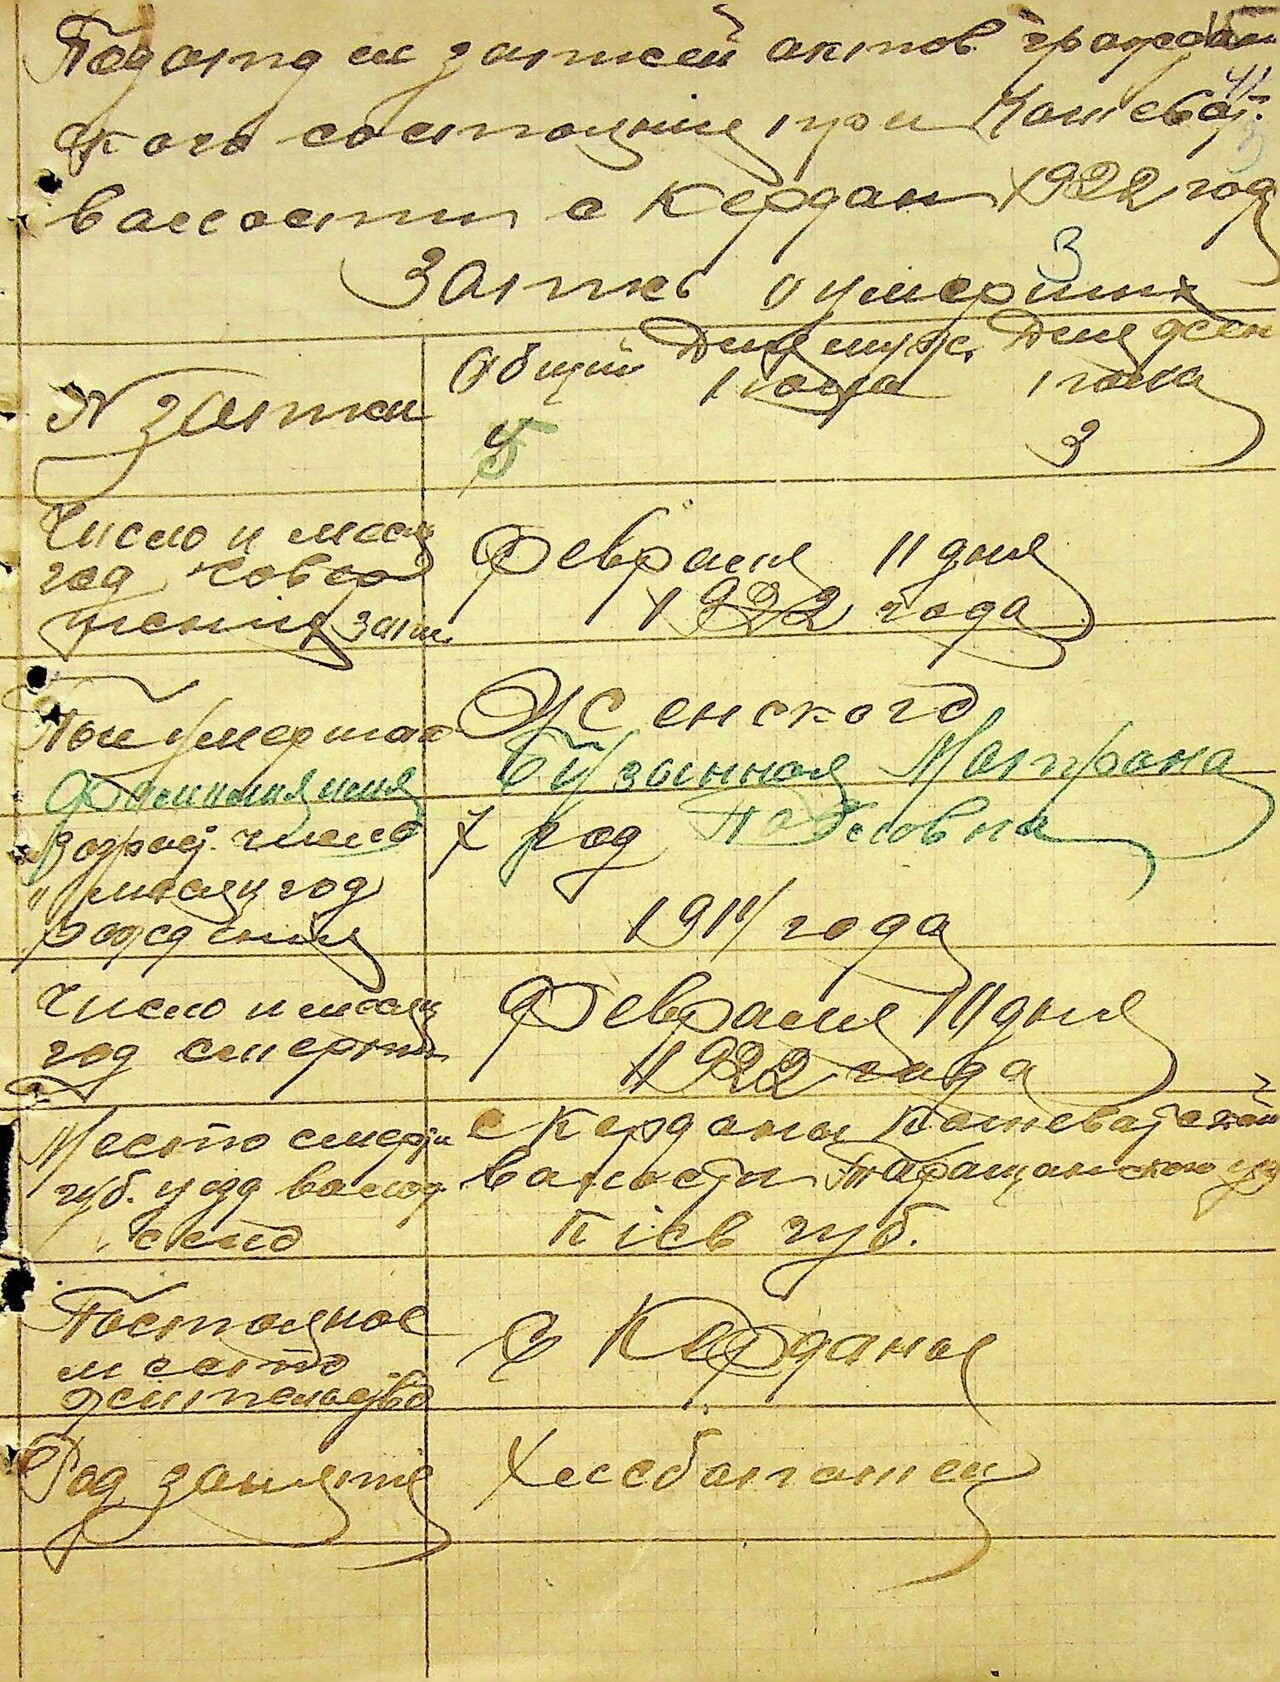 Подотдел записей актов граждан
ского состояния при Кошеват.
валости с Кердан 1922 год
3
Запись о умерших
№ записи
Общий
Для муж. 1 пола
Для жен 1 пола
5
3
Число и месяц
год совер
шения запи.
Февраля 11 дня
1922 года
Пол умершаго
Женского
Фамилия имя
Бузынная Матрона
Павловна
возраст. число
и месяц год
рождения
год
1911 года
Число и месяц
год смерти
Февраля 10 дня
1922 года
Место смерти
губ. уезд валост
село
с Керданы Кошеватской
валости Таращанского уез
Кіев губ.
Постоянное
место
жительство
С Керданы
Род занятия
Хлебопашец